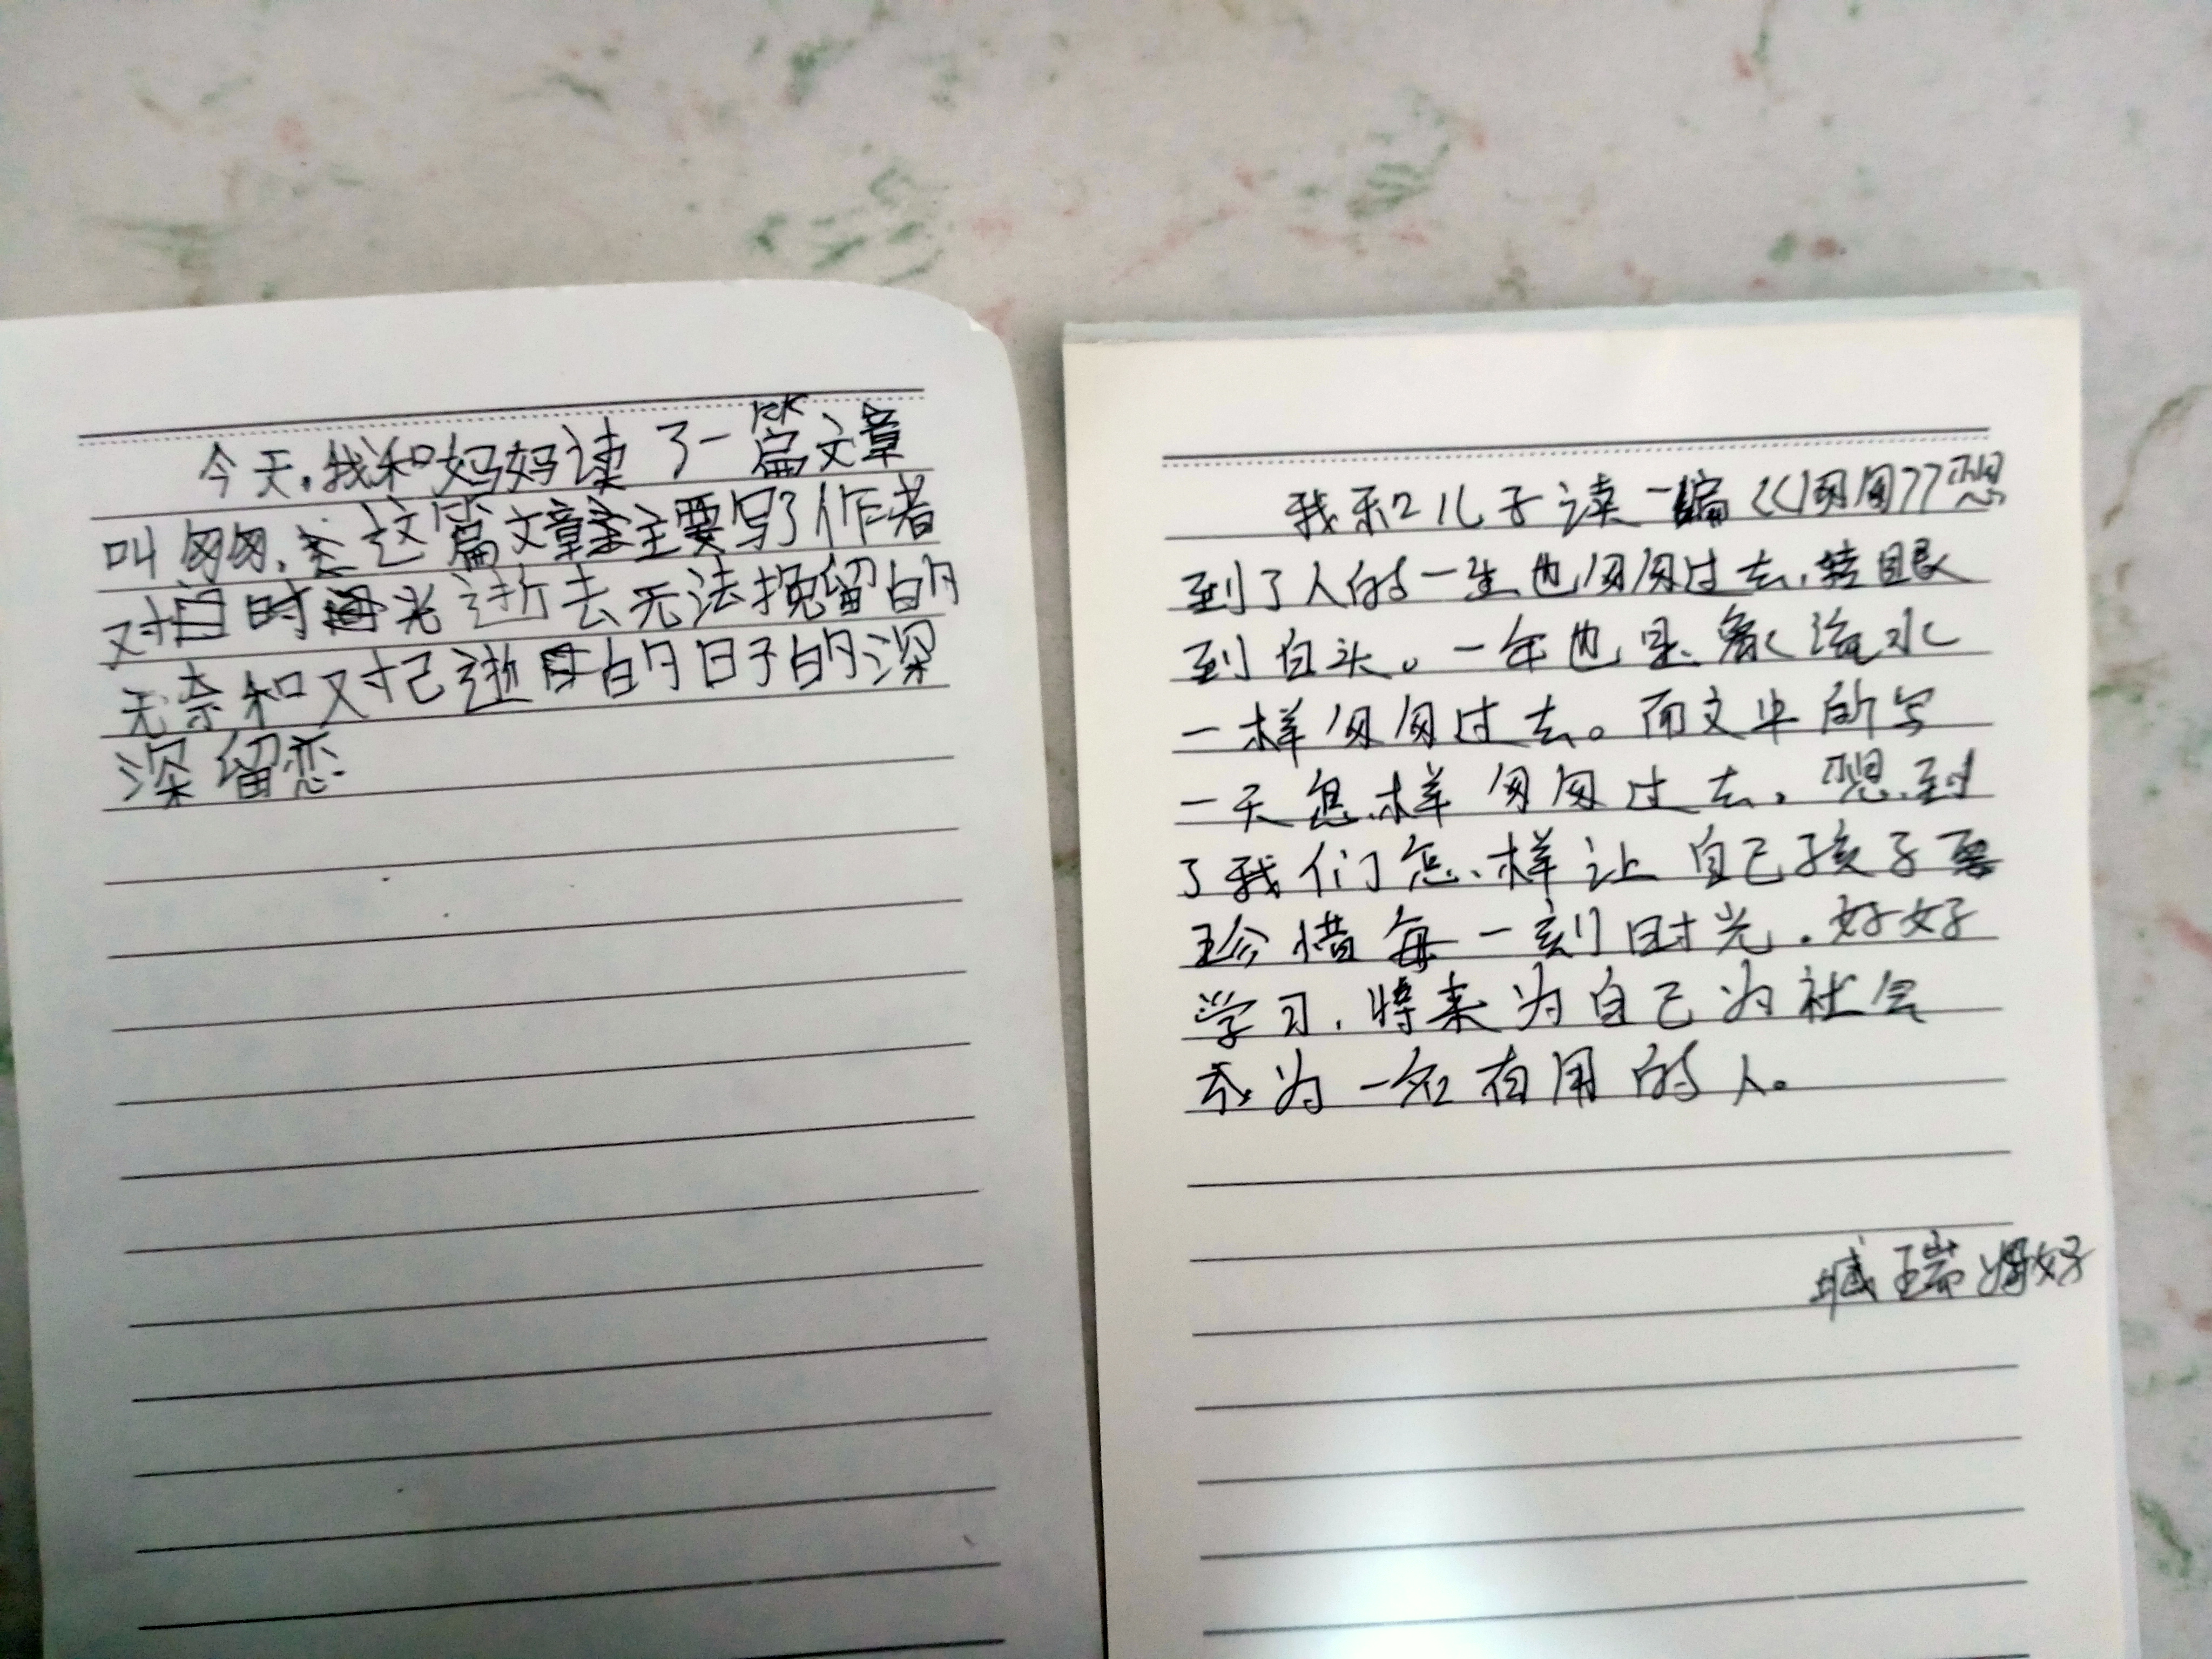 今天,我和妈妈读了一篇文章
叫匆匆,这篇文章主要写了作者
对时光逝去无法挽留的
无奈和对已逝的日子的深
深留恋
我和儿子读一编《匆匆》想
到了人的一生也匆匆过去,转眼
到白头。一年也是象流水
一样匆匆过去。而文中所写
一天怎样匆匆过去,想到
了我们怎样让自己孩子
珍惜每一刻时光,好好
学习,将来为自己为社会
成为一名有用的人。
瑞妈妈